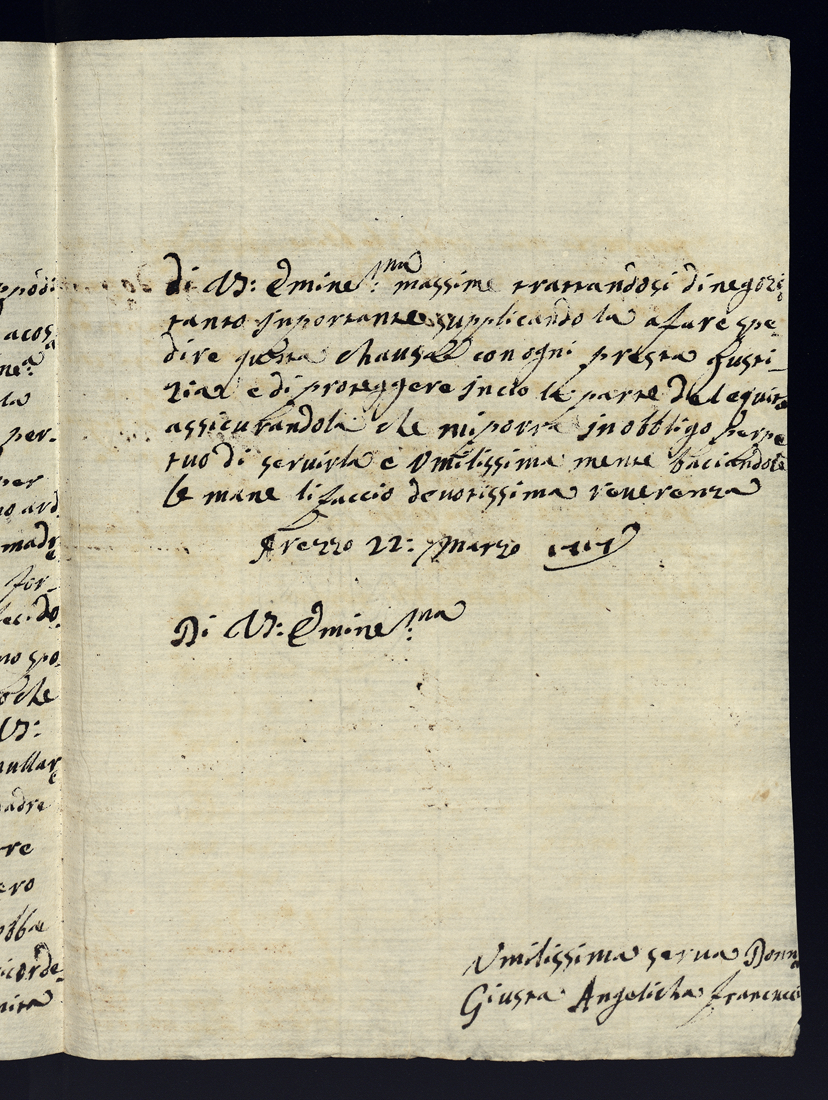 di V: Emine.ma massime trattandosi di negozi
tanto inportante supplicando la a fare spe-
dire questa chausa con ogni presta gusti-
zia e di proteggere in cio le parte del equita
assicurandola che mi porra in obbligo perpe
tuo di servirla e Umilissima mente baciandole
le mane li faccio devotissima reverenza
Arezzo 22: Marzo 1717
Di V: Emine.ma
Umilissima serva Donna
Giusta Angelicha
acos
la
per.
per
no ard
madre
for-
no spo
che
V:
nullare
adre
re
ero
obba
icorde-